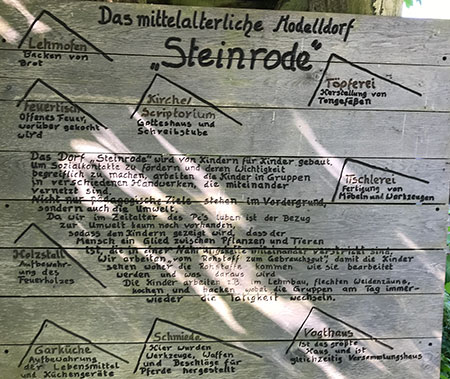 Das mittelalterliche Modelldorf
„Steinrode“
Lehmofen
Backen von
Brot
Töpferei
Herstellung von
Tongefäßen
Feuertisch
Offenes Feuer,
worüber gekocht
wird
Kirche/
Scriptorium
Gotteshaus und
Schreibstube
Tischlerei
Fertigung von
Möbeln und Werkzeugen
Das Dorf „Steinrode“ wird von Kindern für Kinder gebaut.
Um Sozialkontakte zu fördern und deren Wichtigkeit
begreiflich zu machen, arbeiten die Kinder in Gruppen
in verschiedenen Handwerken, die miteinander
vernetzt sind.
Nicht nur pädagogische Ziele stehen im Vordergrund,
sondern auch die Umwelt.
Da wir im Zeitalter des Pc's leben ist der Bezug
zur Umwelt kaum noch vorhanden,
sodass den Kindern gezeigt wird, dass der
Mensch ein Glied zwischen Pflanzen und Tieren
ist, die in einer miteinander verstrickt sind.
Wir arbeiten „vom Rohstoff zum Gebrauchsgut“ damit die Kinder
sehen woher die Rohstoffe kommen wie sie bearbeitet
werden und was daraus wird
Die Kinder arbeiten z.B. im Lehmbau, flechten Weidenzäune,
kochen und backen wobei die Gruppen am Tag immer
wieder die Tätigkeit wechseln.
Holzstall
Aufbewahr-
ung des
Feuerholzes
Garküche
Aufbewahrung
der Lebensmittel
und Küchengeräte
Schmiede
Hier wurden
Werkzeuge, Waffen
und Beschläge für
Pferde hergestellt
Vogthaus
Ist das größte
Haus und ist
gleichzeitig Versammlungshaus